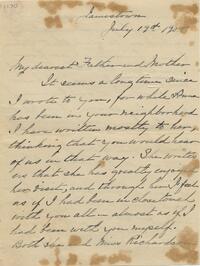 Jamestown
July 19th 190
My dearest Father and Mother
It seems a long time since
I wrote to you, for while Anna
has been in your neighborhood
I have written mostly to her,
thinking that you would hear
of us in that way. She writes
us that she has greatly enjoyed
her visit, and through her I feel
as if I had been in close touch
with you all - almost as if I
had been with you myself.
Both she and Miss Richardson